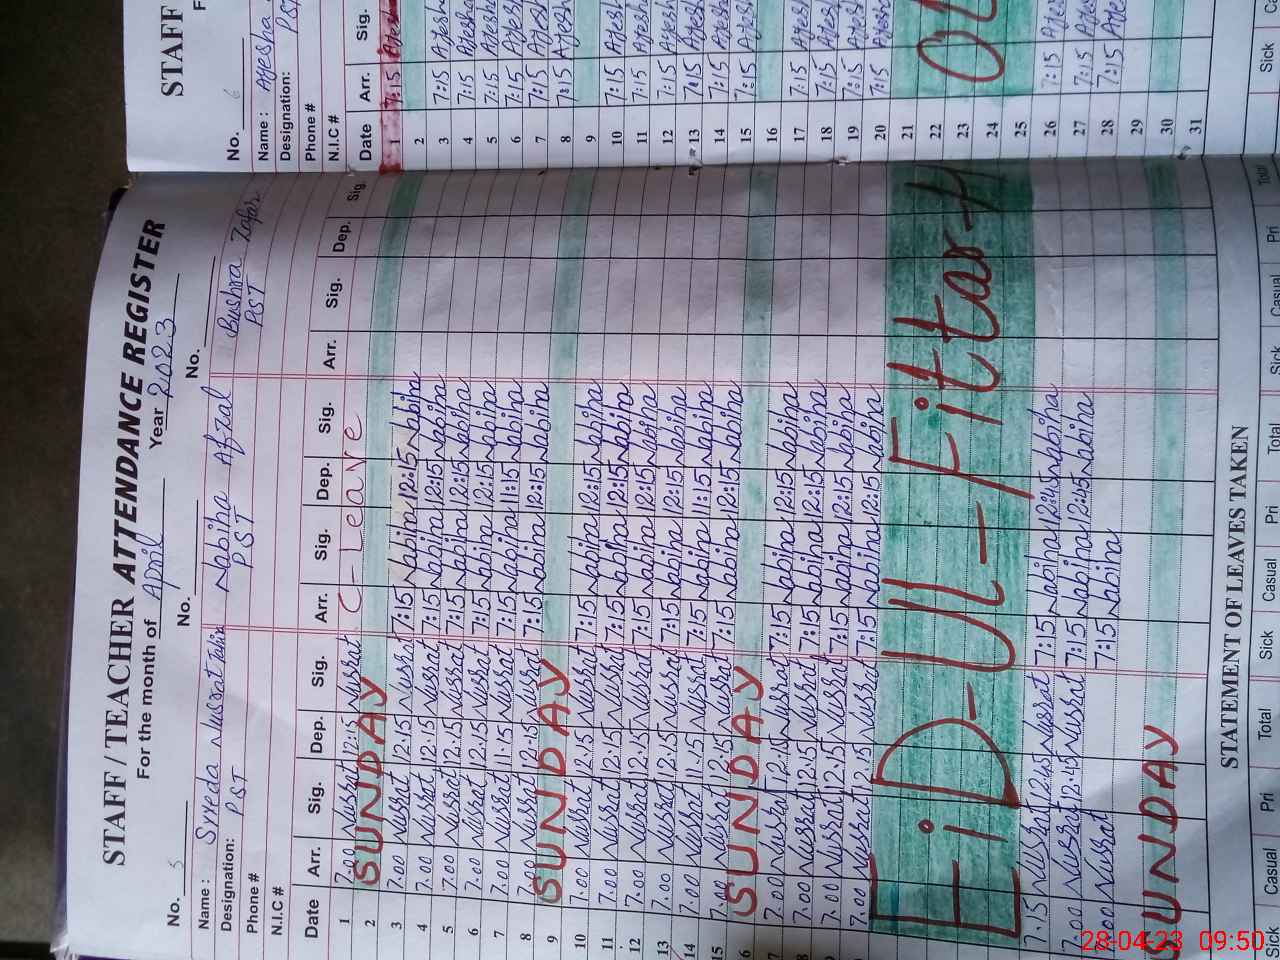 STAFF / TEACHER ATTENDANCE REGISTER
For the month of April Year 2023
No. 5 No. No.
Name : Syeda Nusrat Nabiha Afzal Bushra Zafar
Designation: PST PST PST
Phone #
N.I.C #
Date Arr. Sig. Dep. Sig. Arr. Sig. Dep. Sig. Arr. Sig. Dep. Sig.
1 7.00 Nusrat 12.15 Nusrat C-Leave
2 SUNDAY
3 7.00 Nusrat 12.15 Nusrat 7:15 Nabiha 12:15 Nabiha
4 7.00 Nusrat 12.15 Nusrat 7:15 Nabiha 12:15 Nabiha
5 7.00 Nusrat 12.15 Nusrat 7:15 Nabiha 12:15 Nabiha
6 7.00 Nusrat 12.15 Nusrat 7:15 Nabiha 12:15 Nabiha
7 7.00 Nusrat 11.15 Nusrat 7:15 Nabiha 11:15 Nabiha
8 7.00 Nusrat 12.15 Nusrat 7:15 Nabiha 12:15 Nabiha
9 SUNDAY
10 7.00 Nusrat 12.15 Nusrat 7:15 Nabiha 12:15 Nabiha
11 7.00 Nusrat 12.15 Nusrat 7:15 Nabiha 12:15 Nabiha
12 7.00 Nusrat 12.15 Nusrat 7:15 Nabiha 12:15 Nabiha
13 7.00 Nusrat 12.15 Nusrat 7:15 Nabiha 12:15 Nabiha
14 7.00 Nusrat 11.15 Nusrat 7:15 Nabiha 11:15 Nabiha
15 7.00 Nusrat 12.15 Nusrat 7:15 Nabiha 12:15 Nabiha
6 SUNDAY
7 7.00 Nusrat 12.15 Nusrat 7:15 Nabiha 12:15 Nabiha
8 7.00 Nusrat 12.15 Nusrat 7:15 Nabiha 12:15 Nabiha
9 7.00 Nusrat 12.15 Nusrat 7:15 Nabiha 12:15 Nabiha
7.00 Nusrat 12.15 Nusrat 7:15 Nabiha 12:15 Nabiha
EiD-UL-Fittar-H
7.15 Nusrat 12.45 Nusrat 7:15 Nabiha 12:45 Nabiha
7:00 Nusrat 12.45 Nusrat 7:15 Nabiha 12:45 Nabiha
7:00 Nusrat 7:15 Nabiha
SUNDAY
STATEMENT OF LEAVES TAKEN
Sick Casual Pri Total Sick Casual Pri Total Sick Casual Pri Total
STAFF
No. 6
Name : Ayesha
Designation: PST
Phone #
N.I.C #
Date Arr. Sig.
1 7:15 Ayesh
2
3 7:15 Ayesh
4 7:15 Ayesh
5 7:15 Ayesh
6 7:15 Ayesh
7 7:15 Ayesh
8 7:15 Ayesh
9
10 7:15 Ayesh
11 7:15 Ayesh
12 7:15 Ayesh
13 7:15 Ayesh
14 7:15 Ayesh
15 7:15 Ayesh
16
17 7:15 Ayesh
18 7:15 Ayesh
19 7:15 Ayesh
20 7:15 Ayesh
21
22
23
24
25
26 7:15 Ayesh
27 7:15 Ayesh
28 7:15 Ayesh
29
30
31
Sick Ca
28-04-23 09:50